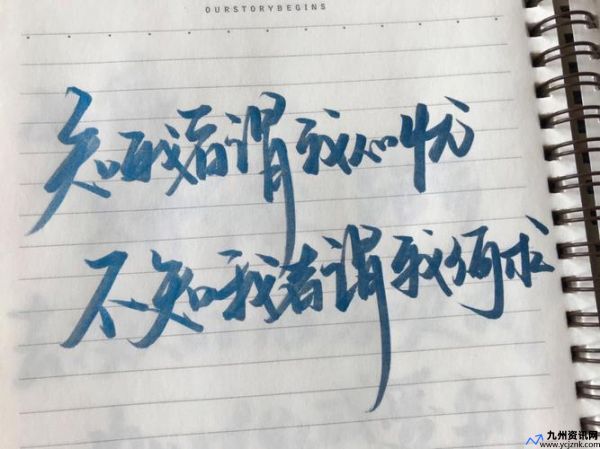 OURSTORYBEGINS
知我者谓我心忧
不知我者谓我何求
九州资讯网
www.ycjznk.com